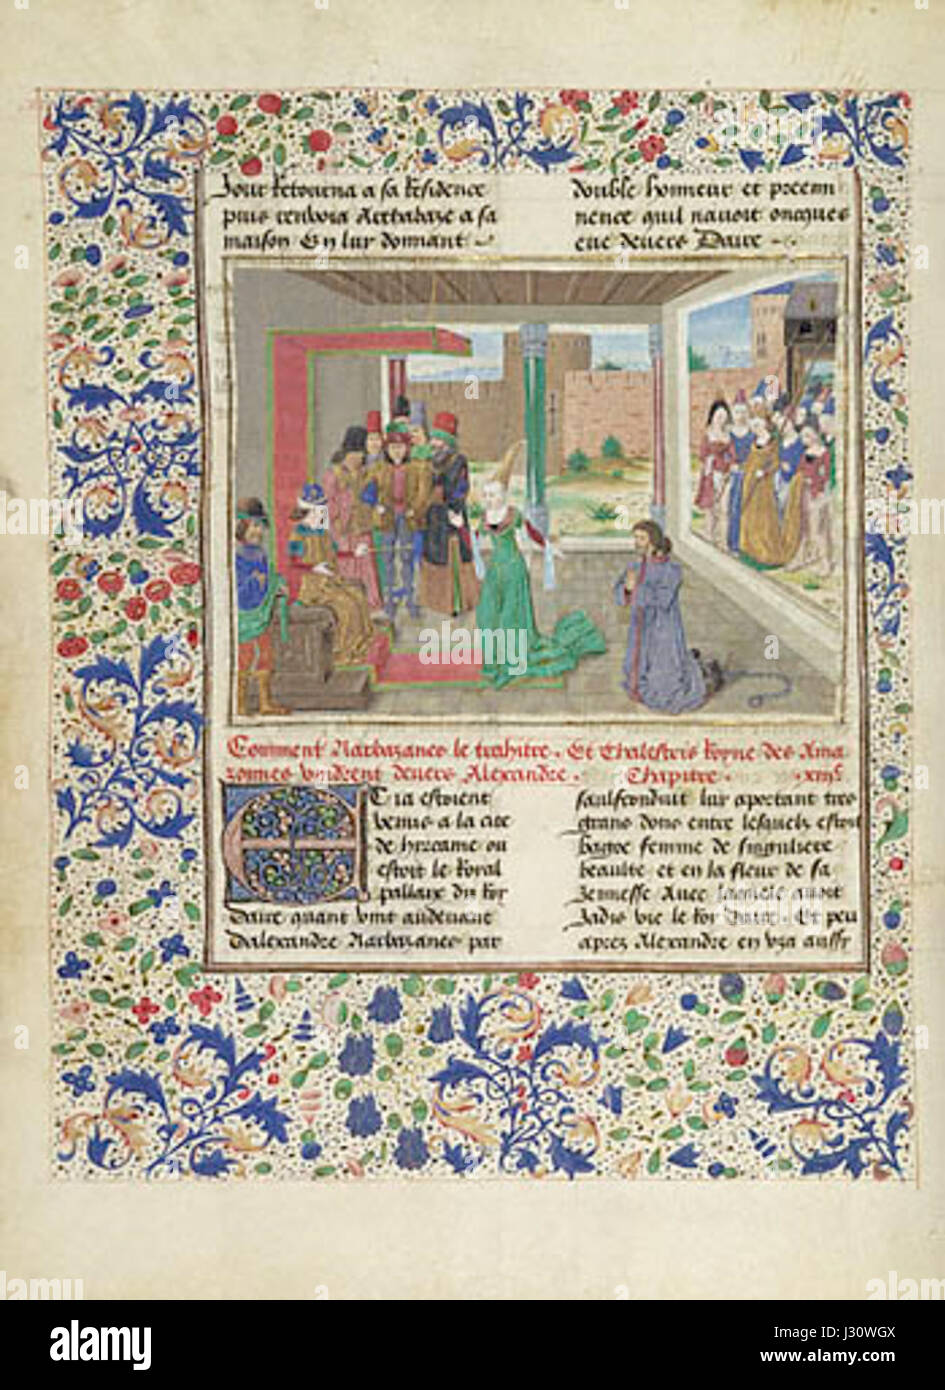 Jour Retourna a sa Residence
puis renvoia Artabaze a sa
maison En lui donnant
double honneur et preemi
nence quil navoit oncques
eue devers Daire
Comment Narbazanes le trahitre. Et Thalestris Royne des Ama
zonnes vindrent devers Alexandre. Chapitre. xiiije
E Ja estoient
venus a la cite
de hyrcame ou
estoit le Royal
pallaix du Roy
Daire quant vint au devant
Dalexandre Narbazanes par
saulfconduit luy aportant tres
grans dons entre lesquelz estoit
bagoe femme de singuliere
beaulte et en la fleur de sa
Jennesse Avec laquele avoit
Jadis vie le Roy Daire. Et peu
apres Alexandre en usa aussy
alamy
Image ID: J30WGX
www.alamy.com